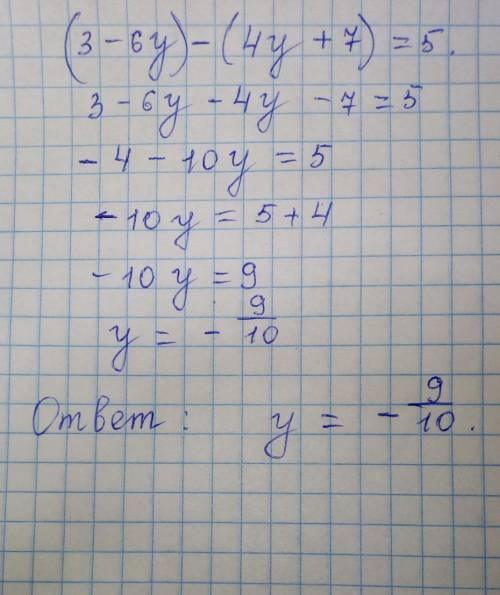 (3 - 6y) - (4y + 7) = 5.
3 - 6y - 4y - 7 = 5
- 4 - 10y = 5
- 10y = 5 + 4
- 10y = 9
y = - 9/10
Ответ: y = - 9/10.